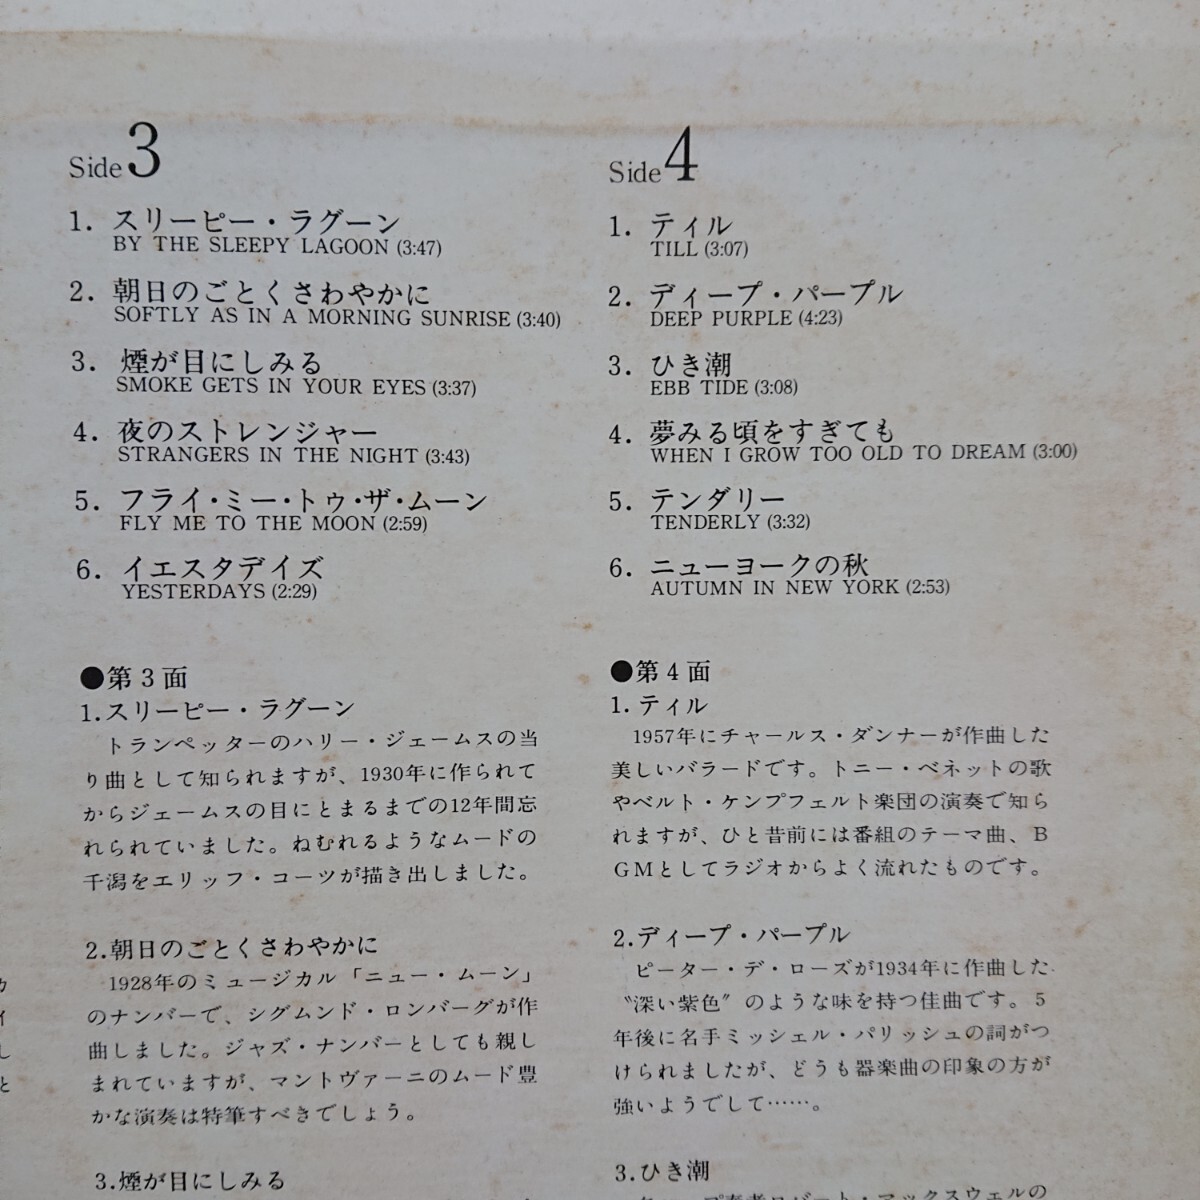 Side 3
1. スリーピー・ラグーン
BY THE SLEEPY LAGOON (3:47)
2. 朝日のごとくさわやかに
SOFTLY AS IN A MORNING SUNRISE (3:40)
3. 煙が目にしみる
SMOKE GETS IN YOUR EYES (3:37)
4. 夜のストレンジャー
STRANGERS IN THE NIGHT (3:43)
5. フライ・ミー・トゥ・ザ・ムーン
FLY ME TO THE MOON (2:59)
6. イエスタデイズ
YESTERDAYS (2:29)
●第3面
1.スリーピー・ラグーン
トランペッターのハリー・ジェームスの当
り曲として知られますが、1930年に作られて
からジェームスの目にとまるまでの12年間忘
れられていました。ねむれるようなムードの
干潟をエリッフ・コーツが描き出しました。
2.朝日のごとくさわやかに
1928年のミュージカル「ニュー・ムーン」
のナンバーで、シグムンド・ロンバーグが作
曲しました。ジャズ・ナンバーとしても親し
まれていますが、マントヴァーニのムード豊
かな演奏は特筆すべきでしょう。
3.煙が目にしみる
Side 4
1. ティル
TILL (3:07)
2. ディープ・パープル
DEEP PURPLE (4:23)
3. ひき潮
EBB TIDE (3:08)
4. 夢みる頃をすぎても
WHEN I GROW TOO OLD TO DREAM (3:00)
5. テンダリー
TENDERLY (3:32)
6. ニューヨークの秋
AUTUMN IN NEW YORK (2:53)
●第4面
1.ティル
1957年にチャールス・ダンナーが作曲した
美しいバラードです。トニー・ベネットの歌
やベルト・ケンプフェルト楽団の演奏で知ら
れますが、ひと昔前には番組のテーマ曲、B
GMとしてラジオからよく流れたものです。
2.ディープ・パープル
ピーター・デ・ローズが1934年に作曲した
〝深い紫色〟のような味を持つ佳曲です。5
年後に名手ミッシェル・パリッシュの詞がつ
けられましたが、どうも器楽曲の印象の方が
強いようでして……。
3.ひき潮
プ奏者ロバート・マックスウェルの